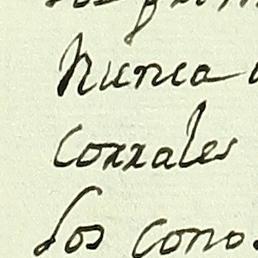 Nunca
corrales
los cono